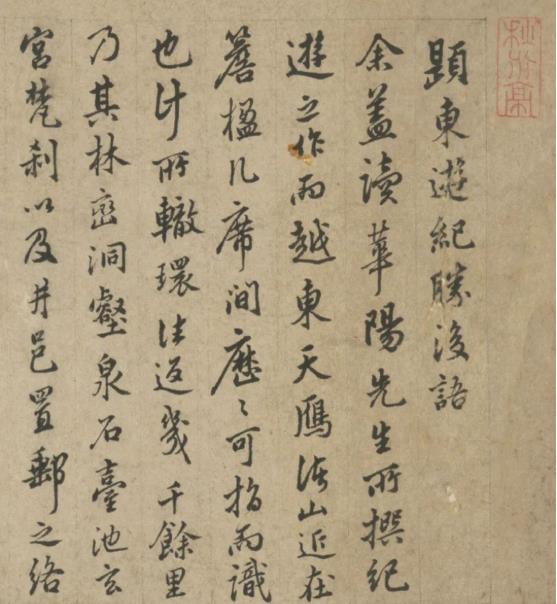 題東遊紀勝後語
余蓋讀華陽先生所撰紀
遊之作而越東天鴈諸山近在
簷楹几席間歷〻可指而識
也計所轍環往返幾千餘里
乃其林巒洞壑泉石臺池玄
宮梵刹以及井邑置郵之絡